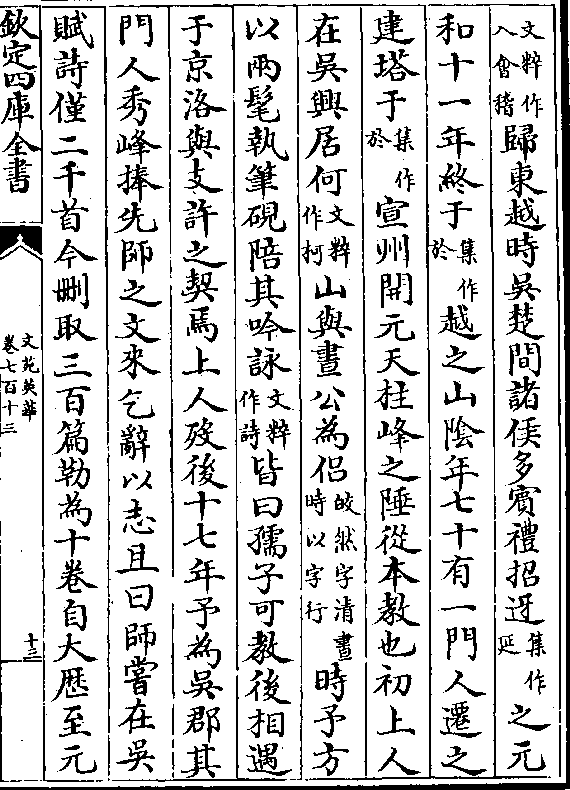 文粹作入會稽歸東越時吳楚間諸侯多賓禮招迓集作延之元
和十一年終于集作於越之山陰年七十有一門人遷之
建塔于集作於宣州開元天柱峰之陲從本教也初上人
在吳興居何文粹作柯山與晝公為侶皎然字清晝時以字行時予方
以兩髦執筆硯陪其吟詠文粹作詩皆曰孺子可教後相遇
于京洛與支許之契焉上人歿後十七年予為吳郡其
門人秀峰捧先師之文來乞辭以志且曰師嘗在吳
賦詩僅二千首今刪取三百篇勒為十卷自大厯至元
欽定四庫全書
文苑英華
卷七百十三
十三